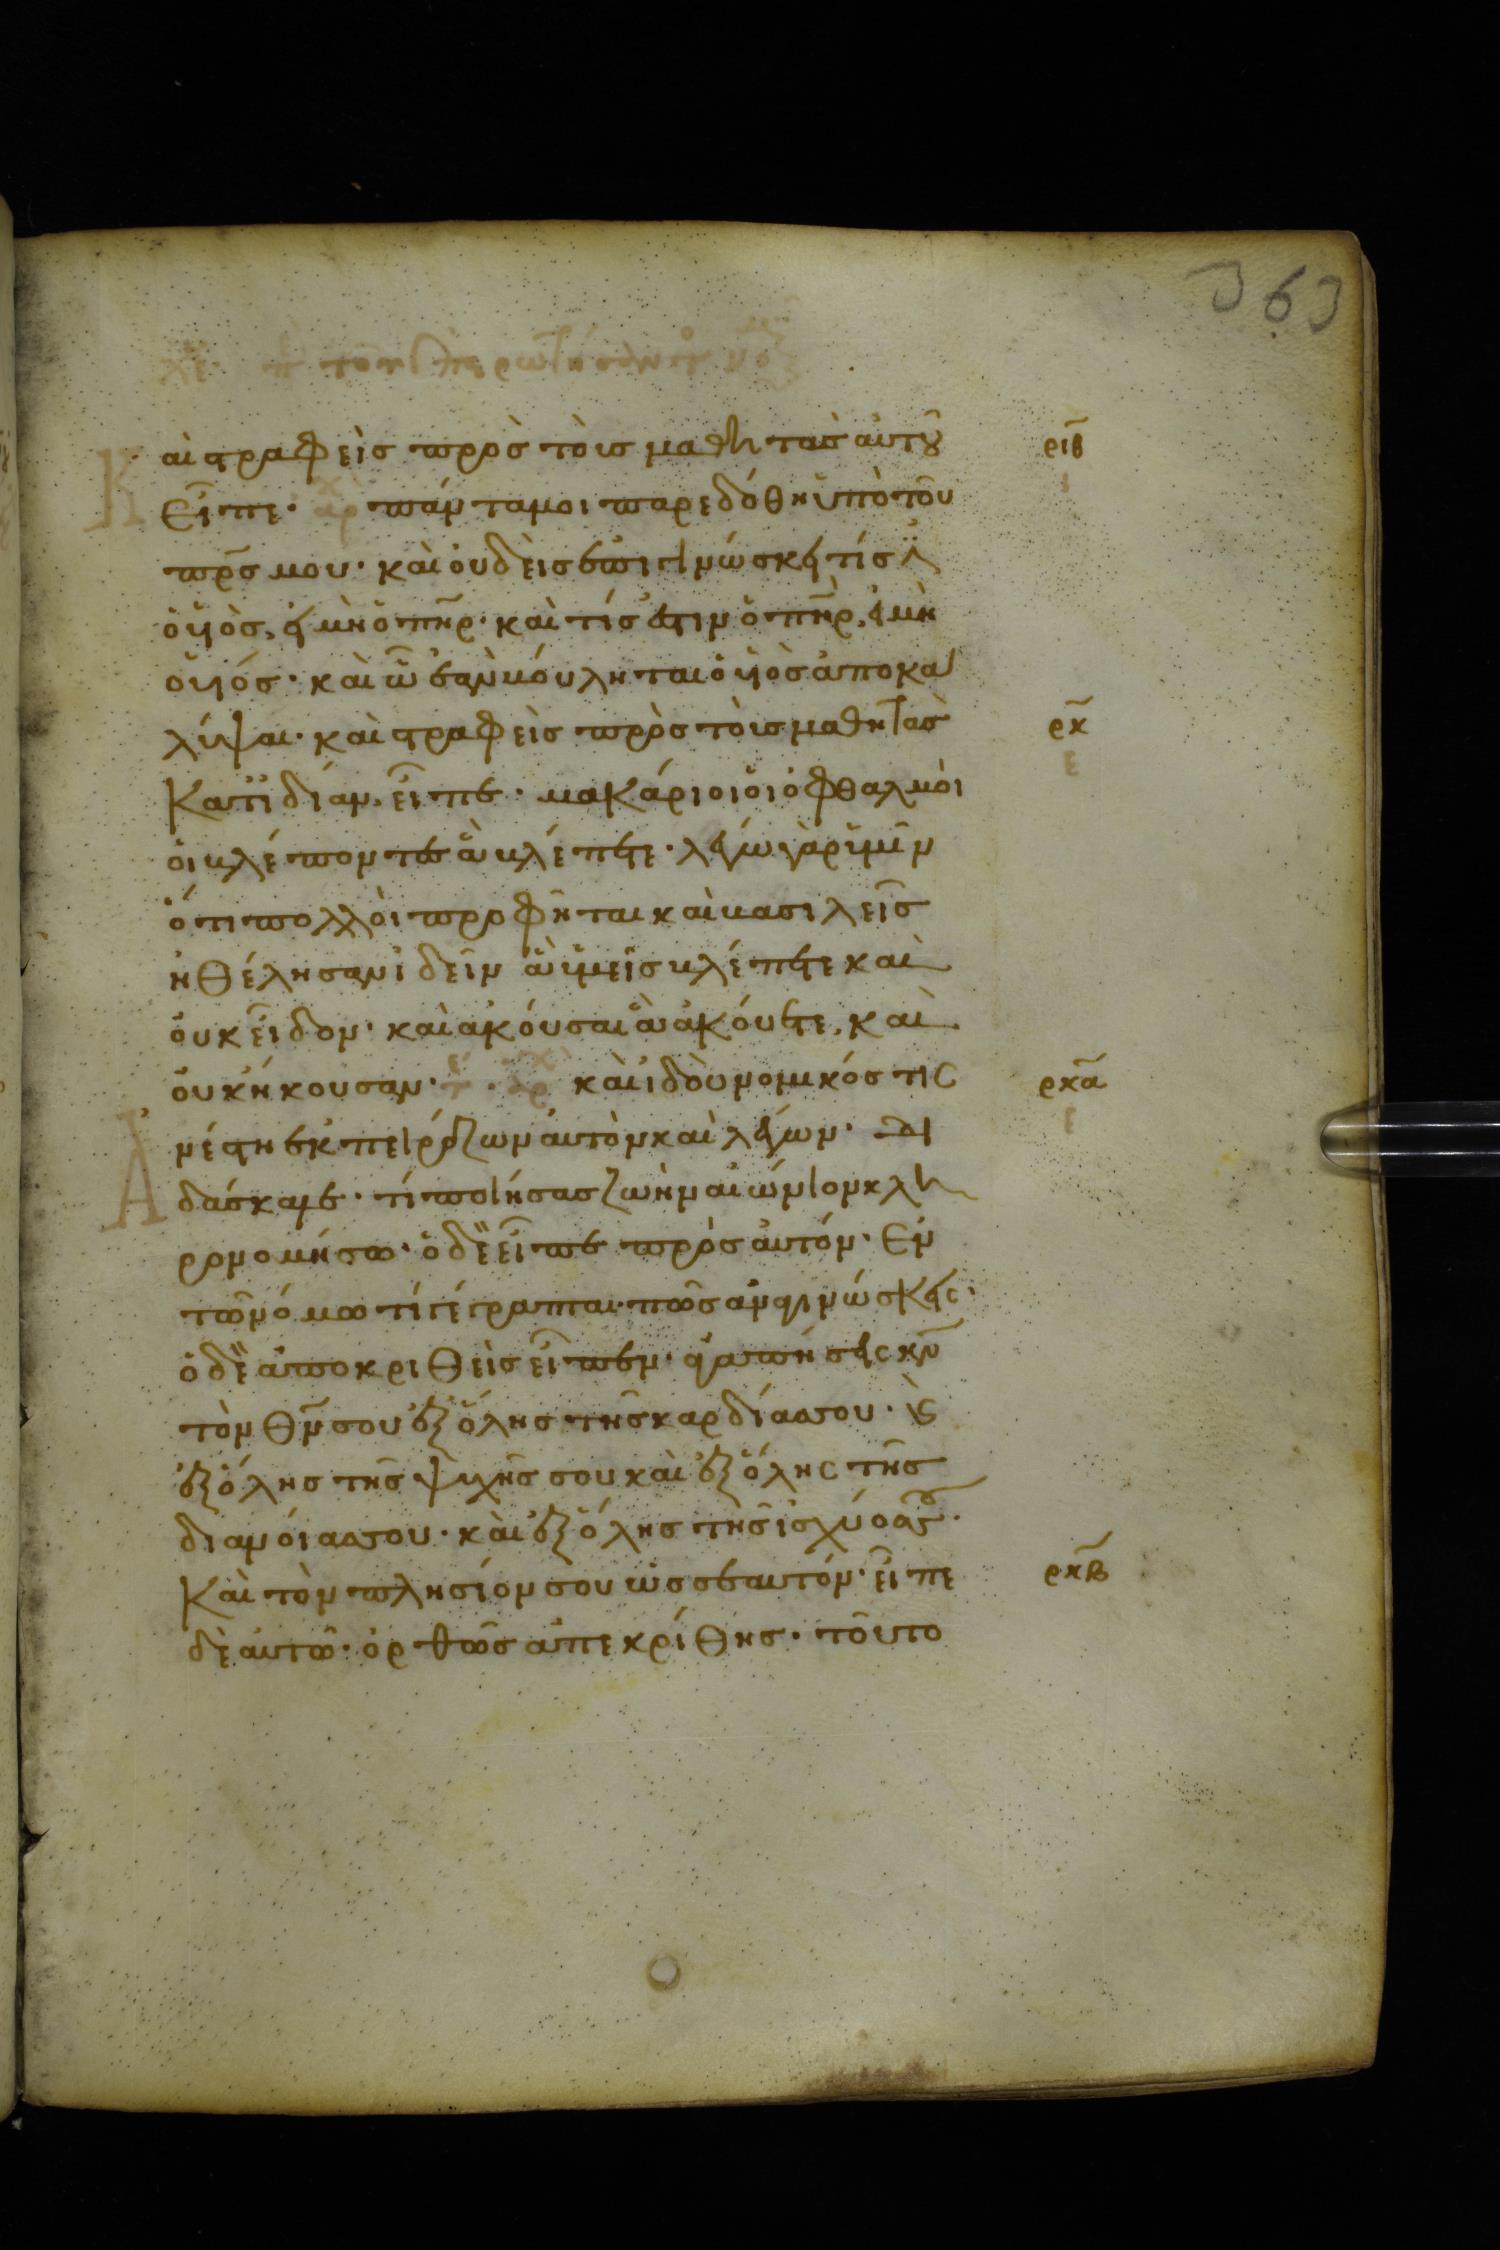 363
Καὶ στραφεὶς πρὸς τοὺς μαθητὰς αὐτοῦ ριβ
εἶπε· πάντα μοι παρεδόθη ὑπὸ τοῦ
πρς μου· καὶ οὐδεὶς ἐπιγινώσκει τίς ἐ
ὁ υἱὸς, εἰ μὴ ὁ πηρ· καὶ τίς ἐστιν ὁ πηρ, εἰ μὴ
ὁ υἱός· καὶ ᾧ ἐὰν βούληται ὁ υἱὸς ἀποκα
λύψαι· καὶ στραφεὶς πρὸς τοὺς μαθητὰς ρκ
κατϊδίαν, εἶπε· μακάριοι οἱ ὀφθαλμοὶ
οἱ βλέποντες ἃ βλέπετε· λέγω γὰρ ὑμῖν
ὅτι πολλοὶ προφῆται καὶ βασιλεῖς
ἠθέλησαν ἰδεῖν ἃ ὑμεῖς βλέπετε καὶ
οὐκ εἶδον· καὶ ἀκοῦσαι ἃ ἀκούετε, καὶ
οὐκ ἤκουσαν· καὶ ἰδοὺ νομικός τις ρκα
Ἀνέστη ἐκπειράζων αὐτὸν καὶ λέγων· δι
δάσκαλε· τί ποιήσας ζωὴν αἰώνιον κλη
ρονομήσω· ὁ δὲ εἶπε πρὸς αὐτόν· ἐν
τῷ νόμω τί γέγραπται· πῶς ἀναγινώσκεις·
ὁ δὲ ἀποκριθεὶς εἶπεν· ἀγαπήσεις κν
τὸν θν σου ἐξ ὅλης τῆς καρδίας σου· κ
ἐξ ὅλης τῆς ψυχῆς σου καὶ ἐξ ὅλης τῆς
διανοίας σου· καὶ ἐξ ὅλης τῆς ἰσχύος σου·
Καὶ τὸν πλησίον σου ὡς σεαυτόν· εἶπε ρκβ
δὲ αὐτῶ· ὀρθῶς ἀπεκρίθης· τοῦτο